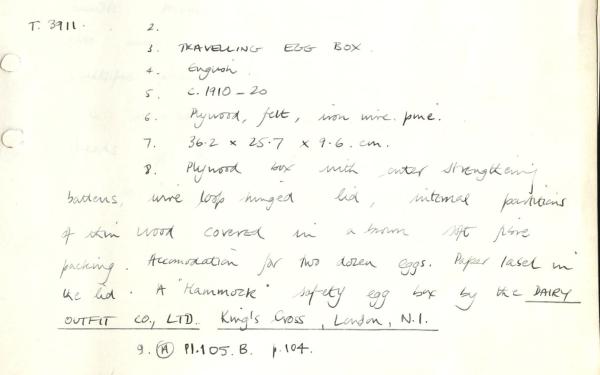 T. 3911. 2.
3. TRAVELLING EGG BOX.
4. English.
5. c. 1910 - 20
6. Plywood, felt, iron wire. pine.
7. 36.2 x 25.7 x 9.6. cm.
8. Plywood box with outer strengthening
battens, wire loop hinged lid, internal partitions
of thin wood covered in a brown soft fibre
packing. Accomodation for two dozen eggs. Paper label in
the lid. A "Hammock" safety egg box by the DAIRY
OUTFIT CO., LTD. King's Cross, London, N.1.
9. (A) Pl. 105. B. p. 104.